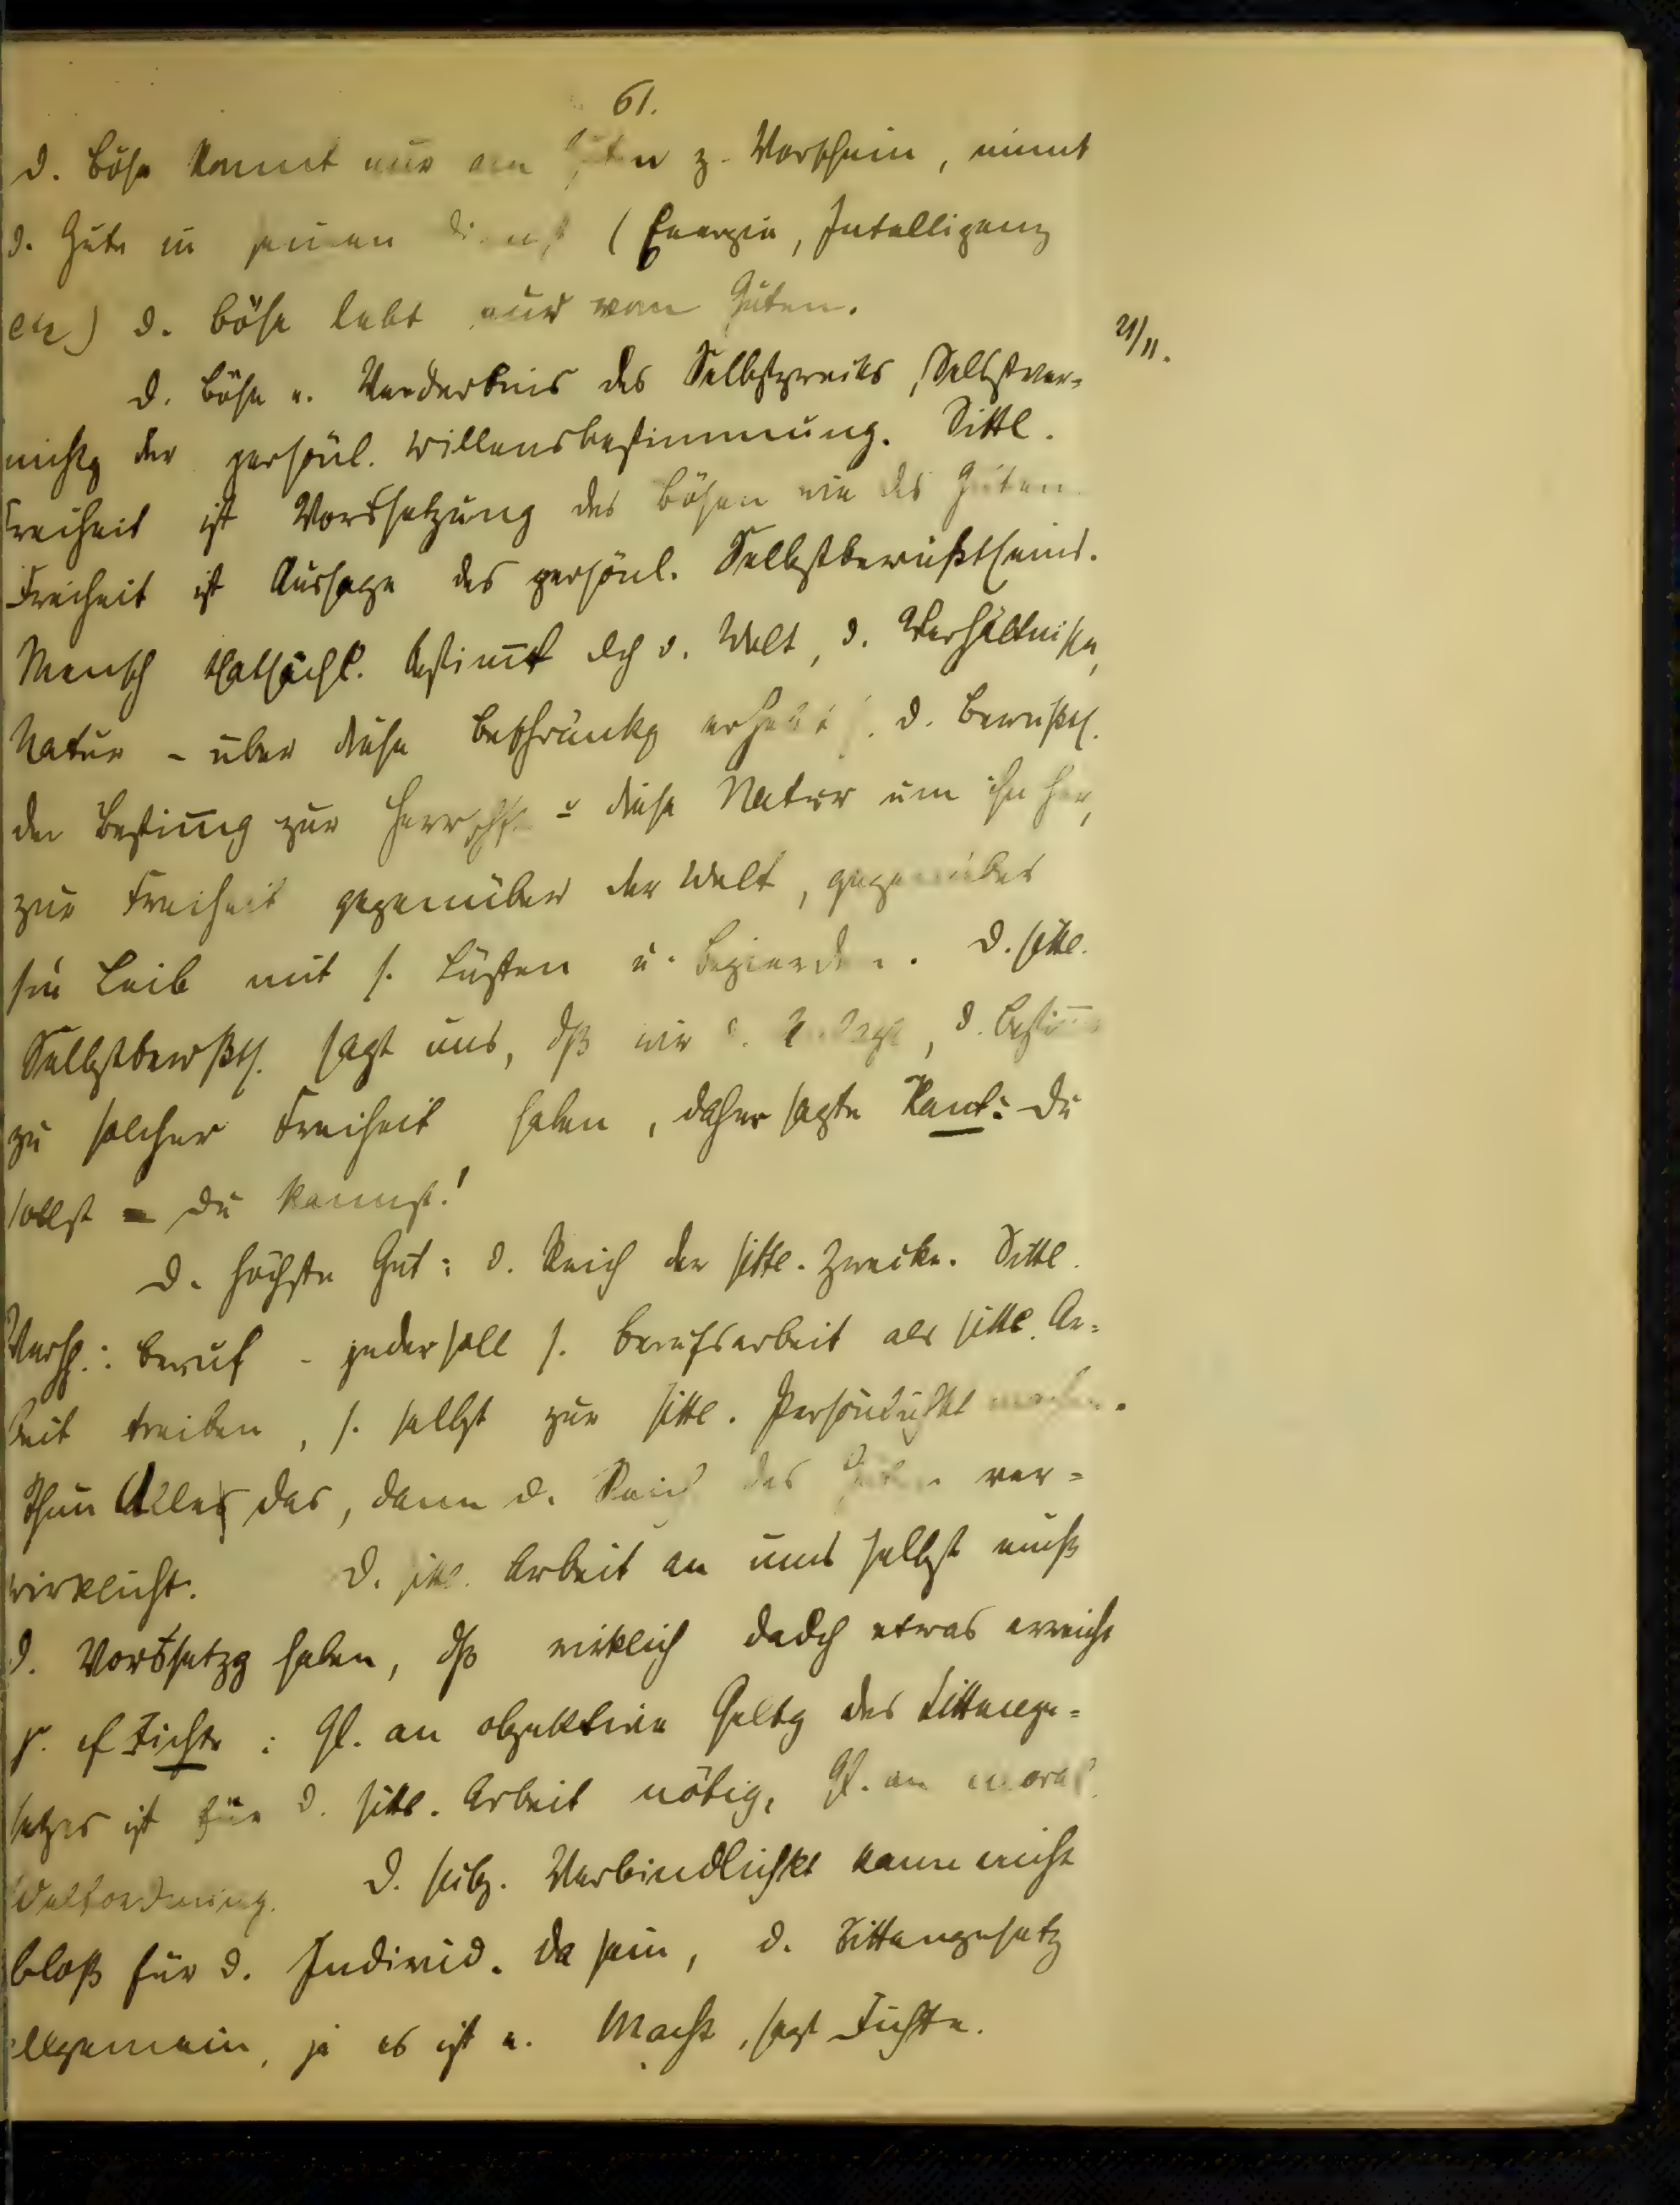 61.
D. Böse kommt nur am Guten z. Vorschein, nimmt
d. Gute in seinen Dienst (Energie, Intelligenz
etc) d. Böse lebt nur vom Guten.
21/11.
D. Böse e. Verderbnis des Selbstzwecks, Selbstver-
nichtg der persönl. Willensbestimmung. Sittl.
Freiheit ist Voraussetzung des Bösen wie des Guten
Freiheit ist Aussage des persönl. Selbstbewußtseins.
Mensch thatsächl. bestimmt dch d. Welt, d. Verhältnisse,
Natur – über diese Beschränkg erhebt s. d. Bewußts.
der Bestimmg zur Herrschft ü diese Natur um ihn her,
zur Freiheit gegenüber der Welt, gegenüber
sm Leib mit s. Lüsten u. Begierden. D. sittl.
Selbstbewßts. sagt uns, dß wir d. Anlage, d. Bestimmg
zu solcher Freiheit haben, daher sagte Kant: Du
sollst = du kannst!
D. höchste Gut: d. Reich der sittl. Zwecke. Sittl.
Beruf – jeder soll s. Berufsarbeit als sittl. Ar-
beit treiben, s. selbst zur sittl. Persönlichkt machen.
Thun Alle das, dann d. Reich des Guten ver-
wirklicht. D. sittl. Arbeit an uns selbst muß
d. Vorssetzg haben, dß wirklich dadch etwas erreicht
cf Fichte: Gl. an objektive Geltg des Sittenge-
setzes ist für d. sittl. Arbeit nötig, Gl. an moral.
Weltordnung. D. Verbindlichkt kann nicht
bloß für d. Individ. da sein, d. Sittengesetz
allgemein, ja es ist e. Macht, sagt Fichte.